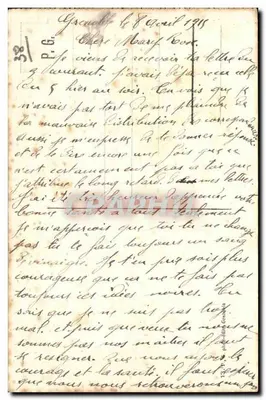 Grenoble le 8 Août 1915
38
P. G.
Chère Marie Rose
Je viens de recevoir ta lettre du
9 courant. J'avais déjà reçu celle
du 5 hier au soir. Tu vois que je
n'avais pas tort de me plaindre de
la mauvaise distribution
aussi je m'empresse de te donner réponse
et de te dire encore une fois que ce
n'est certainement pas à toi que
j'attribue le long retard lettres
J'ai été bonne santé
je m'aperçois que toi tu ne changes
pas tu te fais toujours un sang
Je t'en prie sois plus
courageuse que ça ne te fais pas
toujours des idées noires. Tu
sais que je ne suis pas trop
mal. et puis que veux tu nous ne
sommes pas nos maîtres il faut
se resigner. Que nous ayons le
courage et la santé, il faut espérer
que nous nous retrouverons un jour